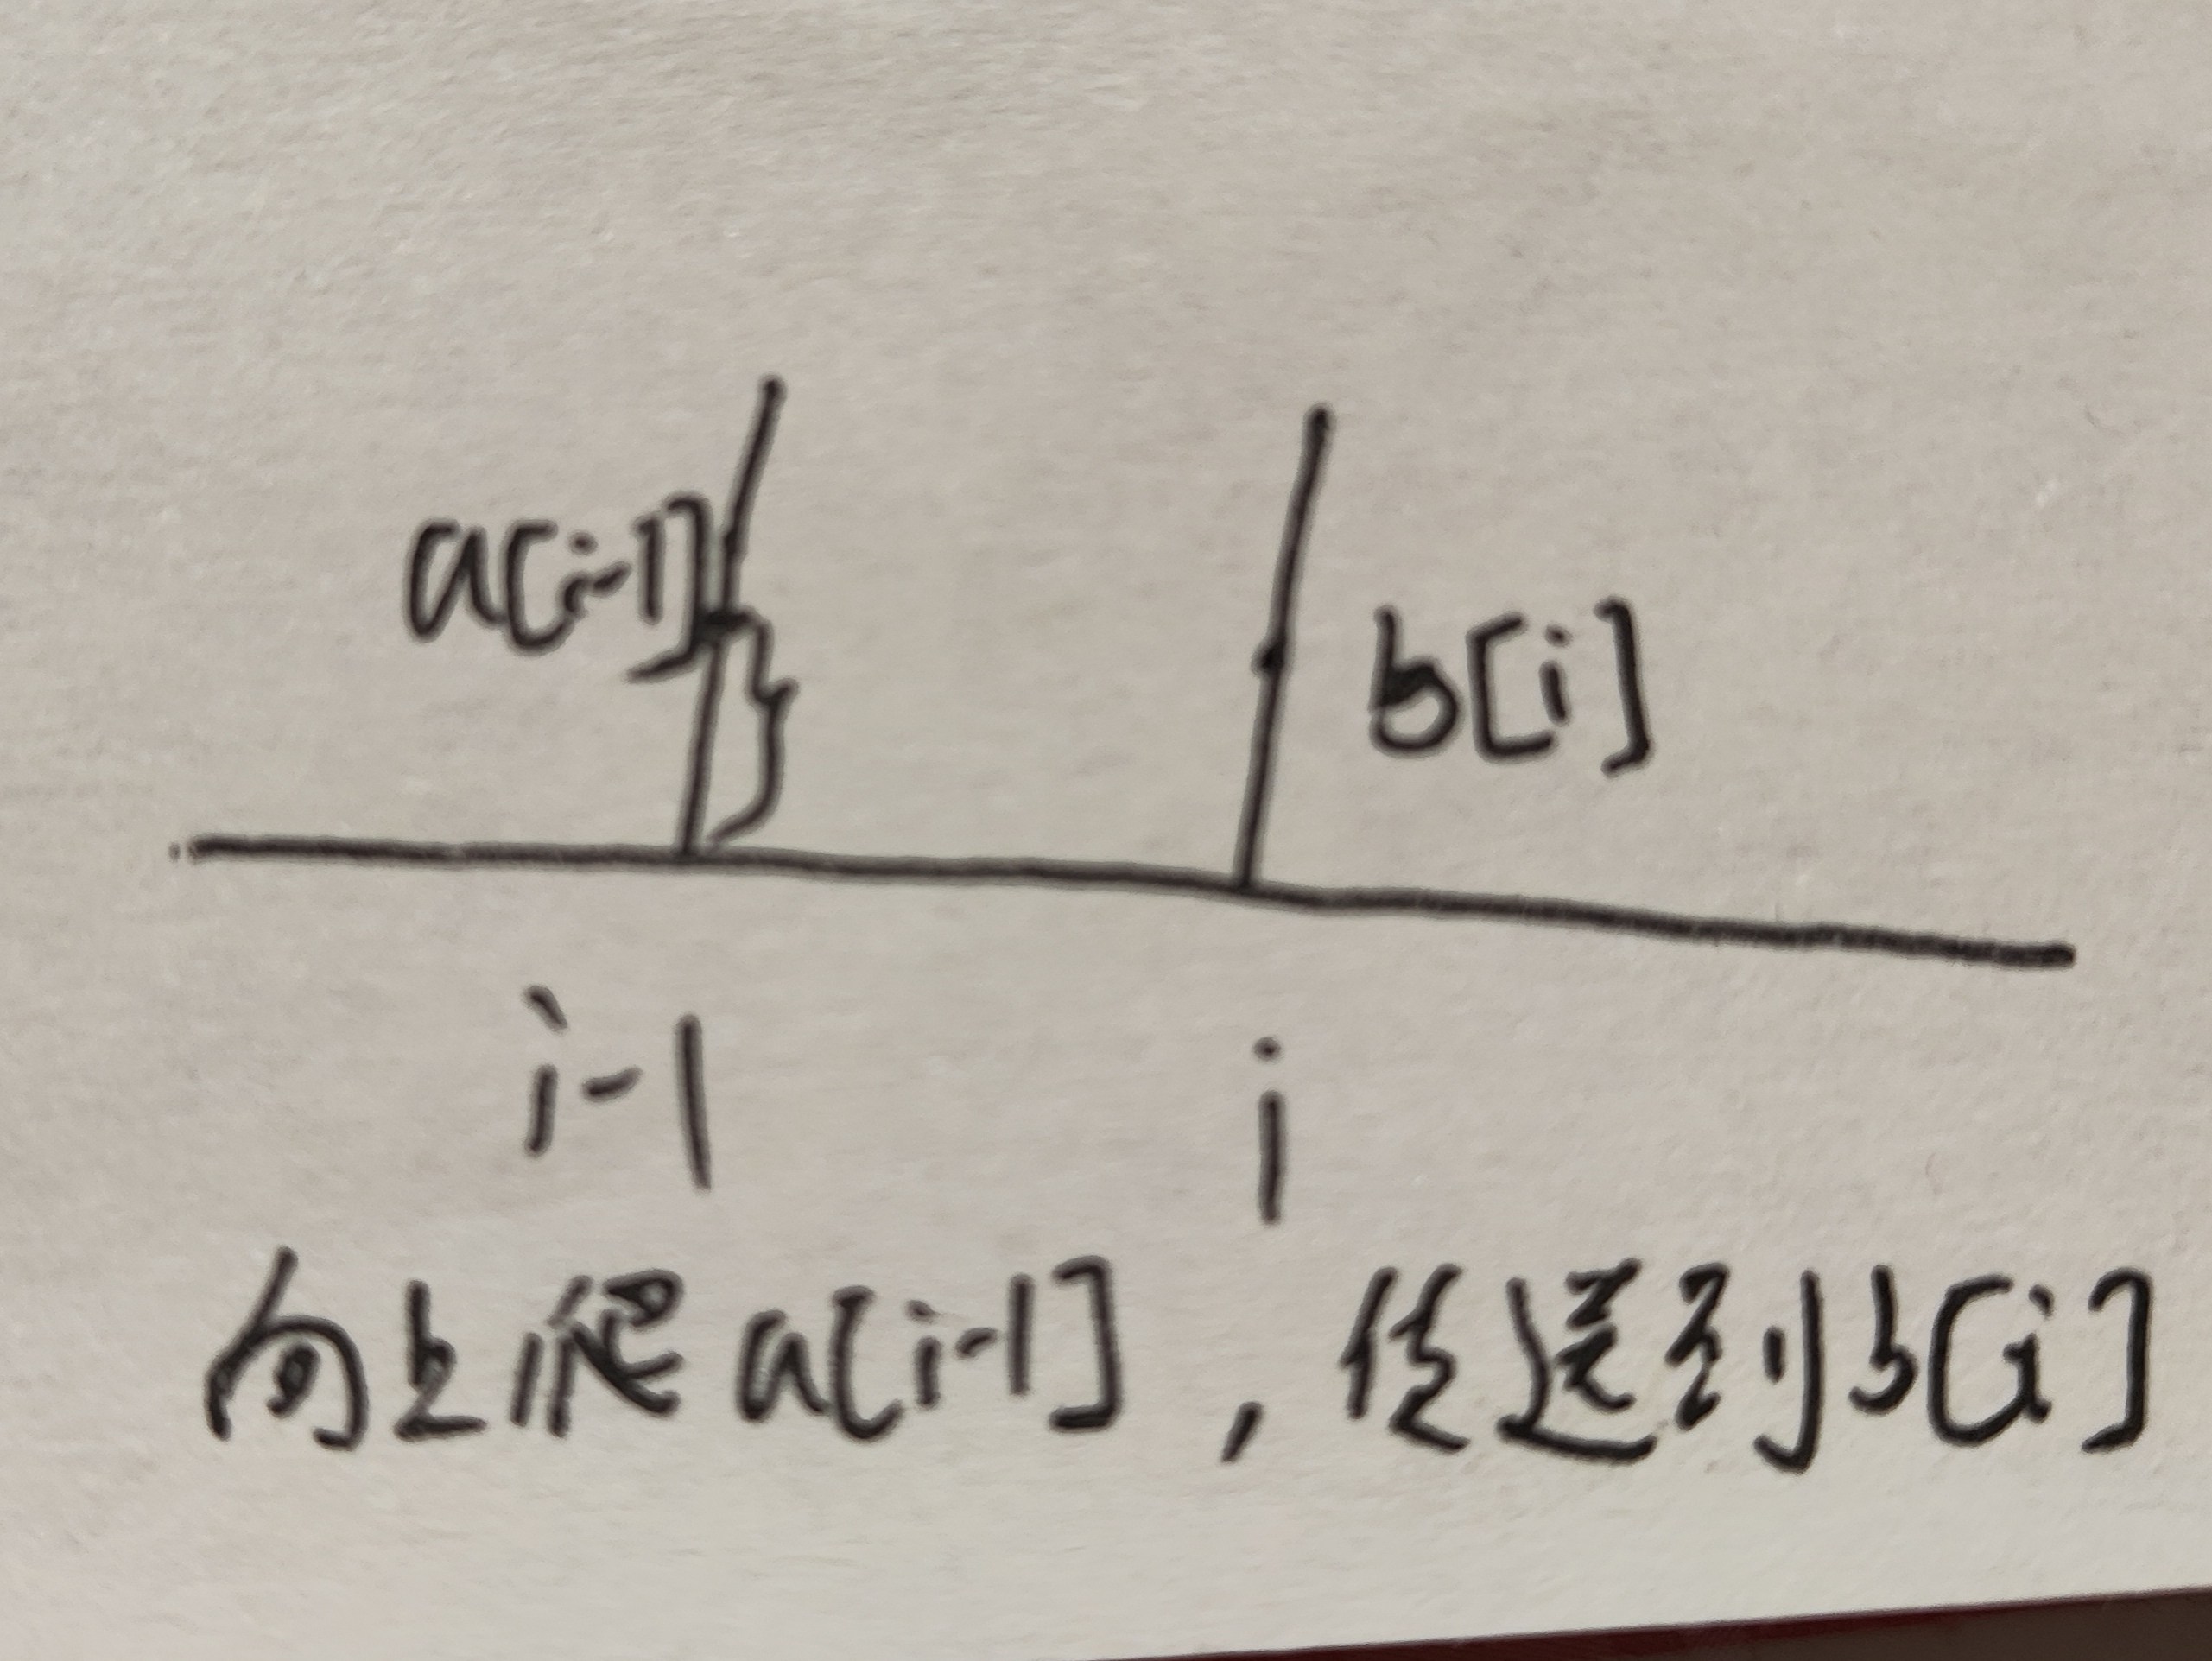 a[i-1]
b[i]
i-1 i
向上爬a[i-1]，传送到b[i]